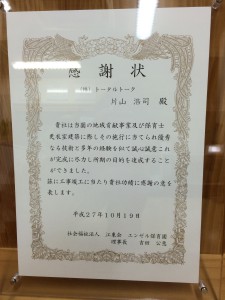 感謝状
(株)トータルトーク
片山 浩司 殿
貴社は当園の地域貢献事業及び保育士
充実室建築に際しその施行に当てられ優秀
なる技術と多年の経験を似て誠心誠意これ
が完成に尽力し所期の目的を達成することが
できました。
茲に工事竣工に当たり貴社功績に感謝の意を
表します。
平成27年10月19日
社会福祉法人 エンゼル保育園
理事長 吉田